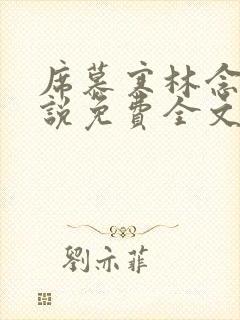 席慕寒林念
說免費全文
劉亦菲